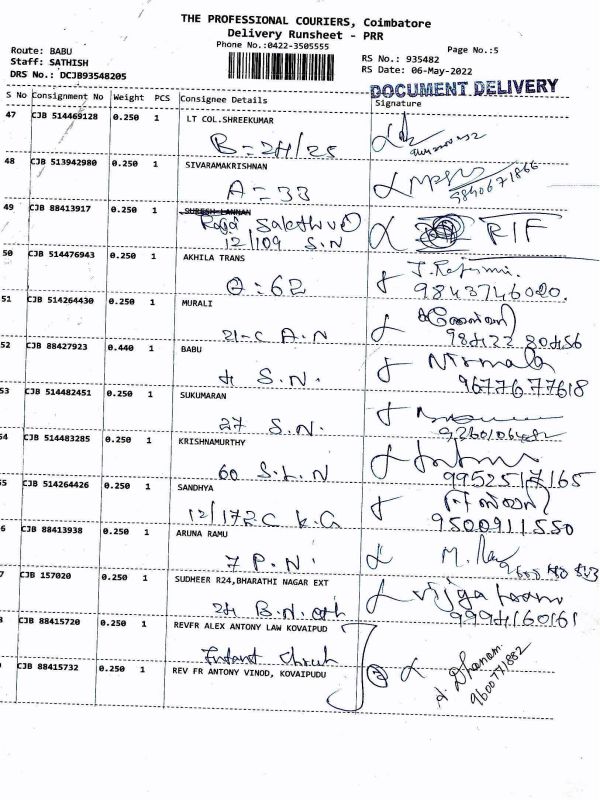 THE PROFESSIONAL COURIERS, Coimbatore
Delivery Runsheet - PRR
Phone No.:0422-3505555
Page No.:5
Route: BABU
Staff: SATHISH
DRS No.: DCJB93548205
RS No.: 935482
RS Date: 06-May-2022
DOCUMENT DELIVERY
S No Consignment No Weight PCS Consignee Details Signature
47 CJB 514469128 0.250 1 LT COL.SHREEKUMAR
B = 24/25
48 CJB 513942980 0.250 1 SIVARAMAKRISHNAN
A = 33
9840671866
49 CJB 88413917 0.250 1
12/109 S.N
RIF
50 CJB 514476943 0.250 1 AKHILA TRANS
62
9843746020.
51 CJB 514264430 0.250 1 MURALI
21-C A.N
98422 80456
52 CJB 88427923 0.440 1 BABU
4 S.N.
Nirmala
9677677618
53 CJB 514482451 0.250 1 SUKUMARAN
27 S.N.
54 CJB 514483285 0.250 1 KRISHNAMURTHY
60 S.L.N
9952517165
55 CJB 514264426 0.250 1 SANDHYA
12/172C K.G
9500911550
6 CJB 88413938 0.250 1 ARUNA RAMU
7 P.N.
7 CJB 157020 0.250 1 SUDHEER R24,BHARATHI NAGAR EXT
24 B.N.
9994160161
8 CJB 88415720 0.250 1 REVFR ALEX ANTONY LAW KOVAIPUD
Infant Church
CJB 88415732 0.250 1 REV FR ANTONY VINOD, KOVAIPUDU
Dhanam
9600771882